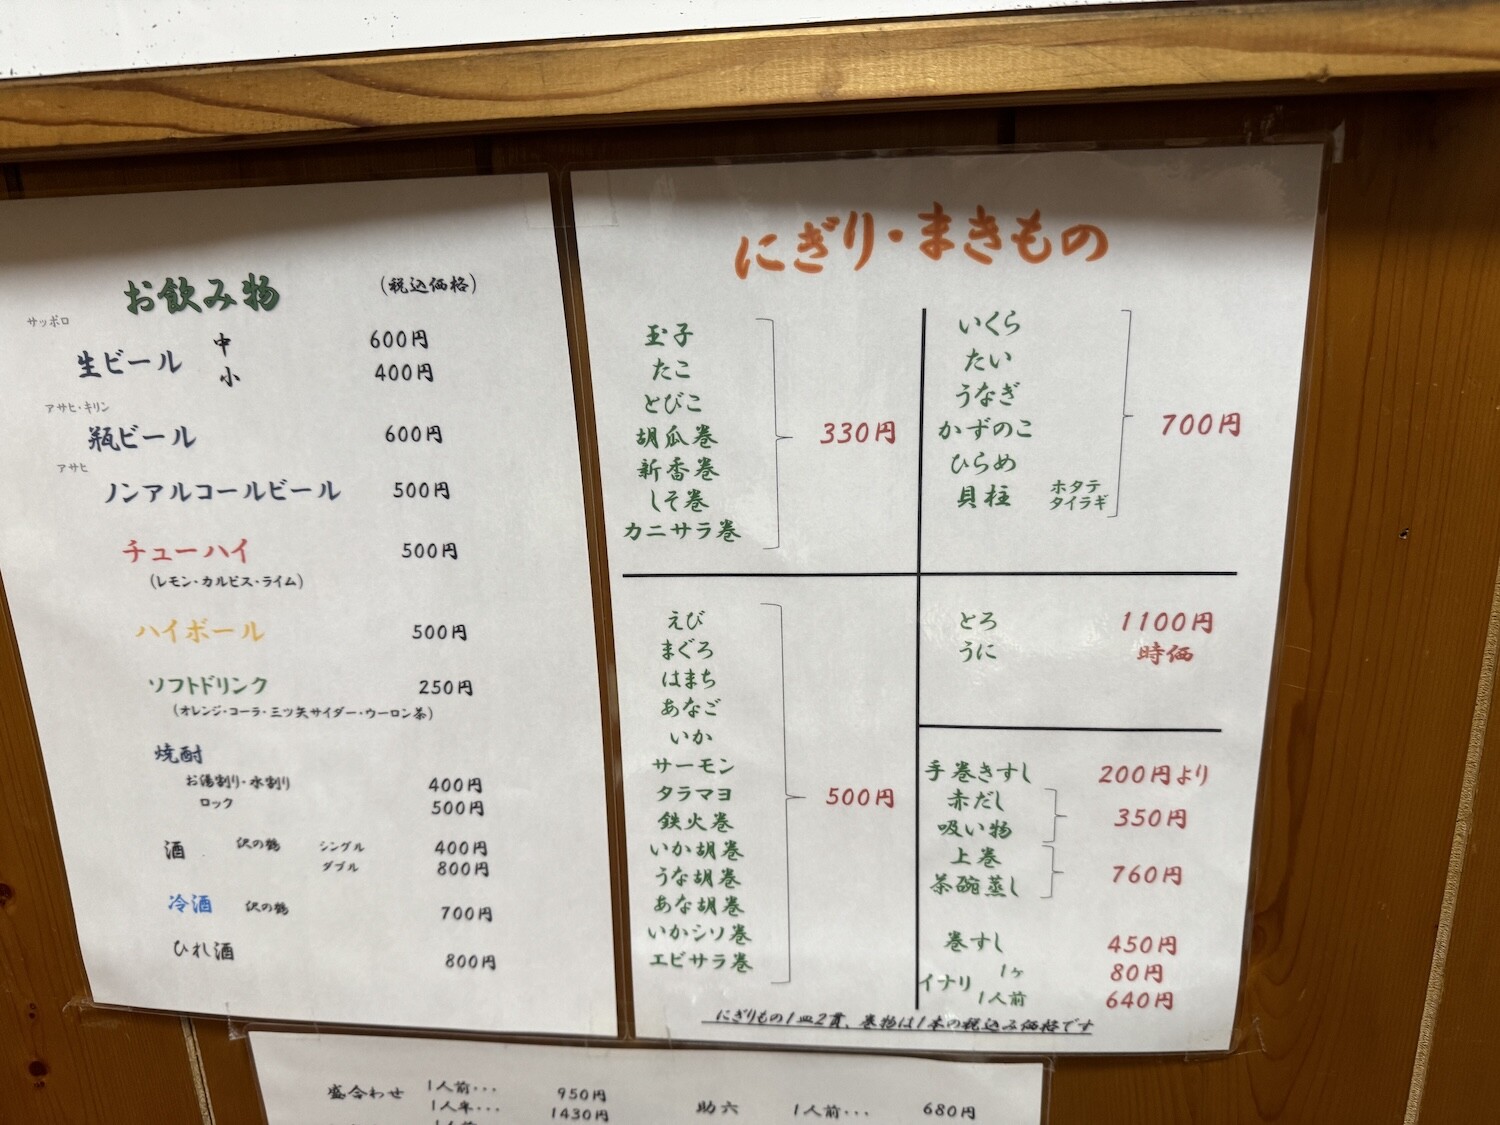 お飲み物 (税込価格)
サッポロ
生ビール 中 600円
小 400円
アサヒ・キリン
瓶ビール 600円
アサヒ
ノンアルコールビール 500円
チューハイ 500円
(レモン・カルピス・ライム)
ハイボール 500円
ソフトドリンク 250円
(オレンジ・コーラ・三ツ矢サイダー・ウーロン茶)
焼酎
お湯割り・水割り 400円
ロック 500円
酒 沢の鶴 シングル 400円
ダブル 800円
冷酒 沢の鶴 700円
ひれ酒 800円
にぎり・まきもの
玉子
たこ
とびこ
胡瓜巻 330円
新香巻
しそ巻
カニサラ巻
いくら
たい
うなぎ
かずのこ 700円
ひらめ
貝柱 ホタテ
タイラギ
えび
まぐろ
はまち
あなご
いか
サーモン
タラマヨ 500円
鉄火巻
いか胡巻
うな胡巻
あな胡巻
いかシソ巻
エビサラ巻
とろ 1100円
うに 時価
手巻きすし 200円より
赤だし
吸い物 350円
上巻
茶碗蒸し 760円
巻すし 450円
イナリ 1ヶ 80円
1人前 640円
にぎりもの1皿2貫、巻物は1本の税込み価格です
盛合わせ 1人前・・・ 950円
1人半・・・ 1430円
助六 1人前・・・ 680円